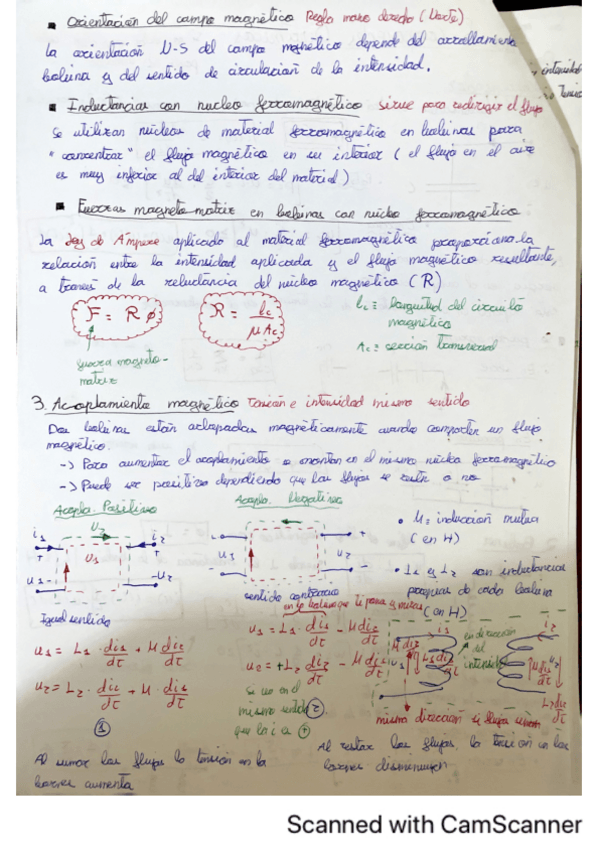 ▪ Orientación del campo magnético Regla mano derecha (Norte)
La orientación N-S del campo magnético depende del arrollamiento
bobina y del sentido de circulación de la intensidad.
→ intensidad
▪ Inductancias con nucleo ferromagnético sirve para redirigir el flujo
Se utilizan núcleos de material ferromagnético en bobinas para
"concentrar" el flujo magnético en su interior (el flujo en el aire
es muy inferior al del interior del material)
▪ Fuerzas magneto-motriz en bobinas con núcleo ferromagnético
La Ley de Ampere aplicado al material ferromagnético proporciona la
relación entre la intensidad aplicada y el flujo magnético resultante,
a traves de la reluctancia del núcleo magnético (R)
F = R φ
R = lc / μ Ac
lc = longitud del circuito
magnético
Ac = sección transversal
fuerza magneto-
motriz
3. Acoplamiento magnético tensión e intensidad mismo sentido
Dos bobinas están acopladas magnéticamente cuando comparten un flujo
magnético.
-> Para aumentar el acoplamiento se montan en el mismo núcleo ferromagnético
-> Puede ser positivo dependiendo que los flujos se resten o no
Acopla. Positivo
Acopla. Negativo
• M = inducción mutua
(en H)
• L1 y L2 son inductancias
propias de cada bobina
(en H)
Igual sentido
sentido contrario
u1 = L1 · di1/dt + M di2/dt
u2 = L2 · di2/dt + M · di1/dt
①
u1 = L1 · di1/dt - M di2/dt
u2 = +L2 di2/dt - M di1/dt
Si va en el
mismo sentido ②
que la i es ⊕
en dirección
del
intensidad
misma dirección si flujos suman
Al sumar los flujos la tensión en la
bornes aumenta
Al restar los flujos la tensión en los
bornes disminuyen
Scanned with CamScanner